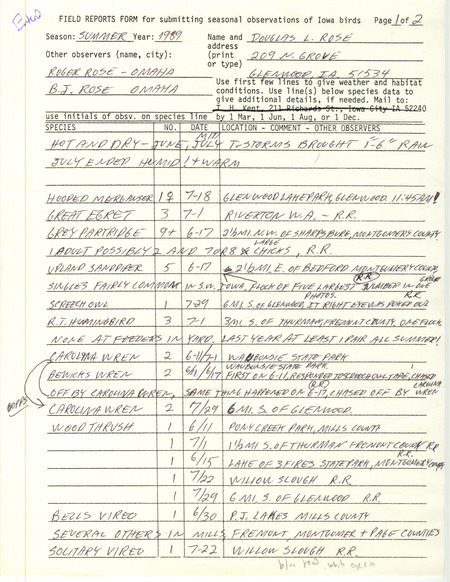 Entered
FIELD REPORTS FORM for submitting seasonal observations of Iowa birds Page 1 of 2
Season: SUMMER Year: 1989 Name and DOUGLAS L. ROSE
address
Other observers (name, city): (print 209 N. GROVE
or type) GLENWOOD, IA 51534
ROGER ROSE - OMAHA
B.J. ROSE OMAHA
Use first few lines to give weather and habitat
conditions. Use line(s) below species data to
give additional details, if needed. Mail to:
T. H. Kent, 211 Richards St., Iowa City IA 52240
use initials of obsv. on species line by 1 Mar, 1 Jun, 1 Aug, or 1 Dec.
SPECIES NO. DATE LOCATION - COMMENT - OTHER OBSERVERS
HOT AND DRY - JUNE, MID JULY T-STORMS BROUGHT 1"-6" RAIN
JULY ENDED HUMID! + WARM
HOODED MERGANSER 1♀ 7-18 GLENWOOD LAKE PARK, GLENWOOD 11:45AM!
GREAT EGRET 3 7-1 RIVERTON W.A. - R.R.
GREY PARTRIDGE 9+ 6-17 2½ MI. N.W. OF SHARPSBURG, MONTGOMERY COUNTY
1 ADULT POSSIBLY 2 AND 7 OR 8 LARGE CHICKS, R.R.
UPLAND SANDPIPER 5 6-17 2½ MI. E. OF BEDFORD MONTGOMERY COUNTY
(R.R.)
SINGLES FAIRLY COMMON IN S.W. IOWA, FLOCK OF FIVE LARGEST NUMBER IN ONE
R.R.
PHOTOS.
SCREECH OWL 1 7/29 6 MI. S. OF GLENWOOD, IT RIGHT EYE WAS POKED OUT
R.T. HUMMINGBIRD 3 7-1 3 MI. S. OF THURMAN, FREMONT COUNTY, ONE FLOCK
NONE AT FEEDERS IN YARD, LAST YEAR AT LEAST 1 PAIR ALL SUMMER!
CAROLYNA WREN 2 6-11/7-1 WAUBONSIE STATE PARK
WAUBONSIE STATE PARK.
BEWICKS WREN 2 6/11/6/17 FIRST ON 6-11, RESPONDED TO SCREECH OWL TAPE, CHASED
(R.R.) CAROLINA
OFF BY CAROLINA WREN, SAME THING HAPPENED ON 6-17, CHASED OFF BY WREN
OOPPS
CAROLINA WREN 2 7/29 6 MI. S. OF GLENWOOD.
WOOD THRUSH 1 6/11 PONY CREEK PARK, MILLS COUNTY
1 7/1 1½ MI S. OF THURMAN FREMONT COUNTY R.R.
R.R.
1 6/15 LAKE OF 3 FIRES STATE PARK, MONTGOMERY COUNTY
1 7/22 WILLOW SLOUGH R.R.
1 7/29 6 MI. S. OF GLENWOOD R.R.
BELLS VIREO 1 6/30 P.J. LAKES MILLS COUNTY
SEVERAL OTHERS IN MILLS, FREMONT, MONTGOMER + PAGE COUNTIES
SOLITARY VIREO 1 7-22 WILLOW SLOUGH R.R.